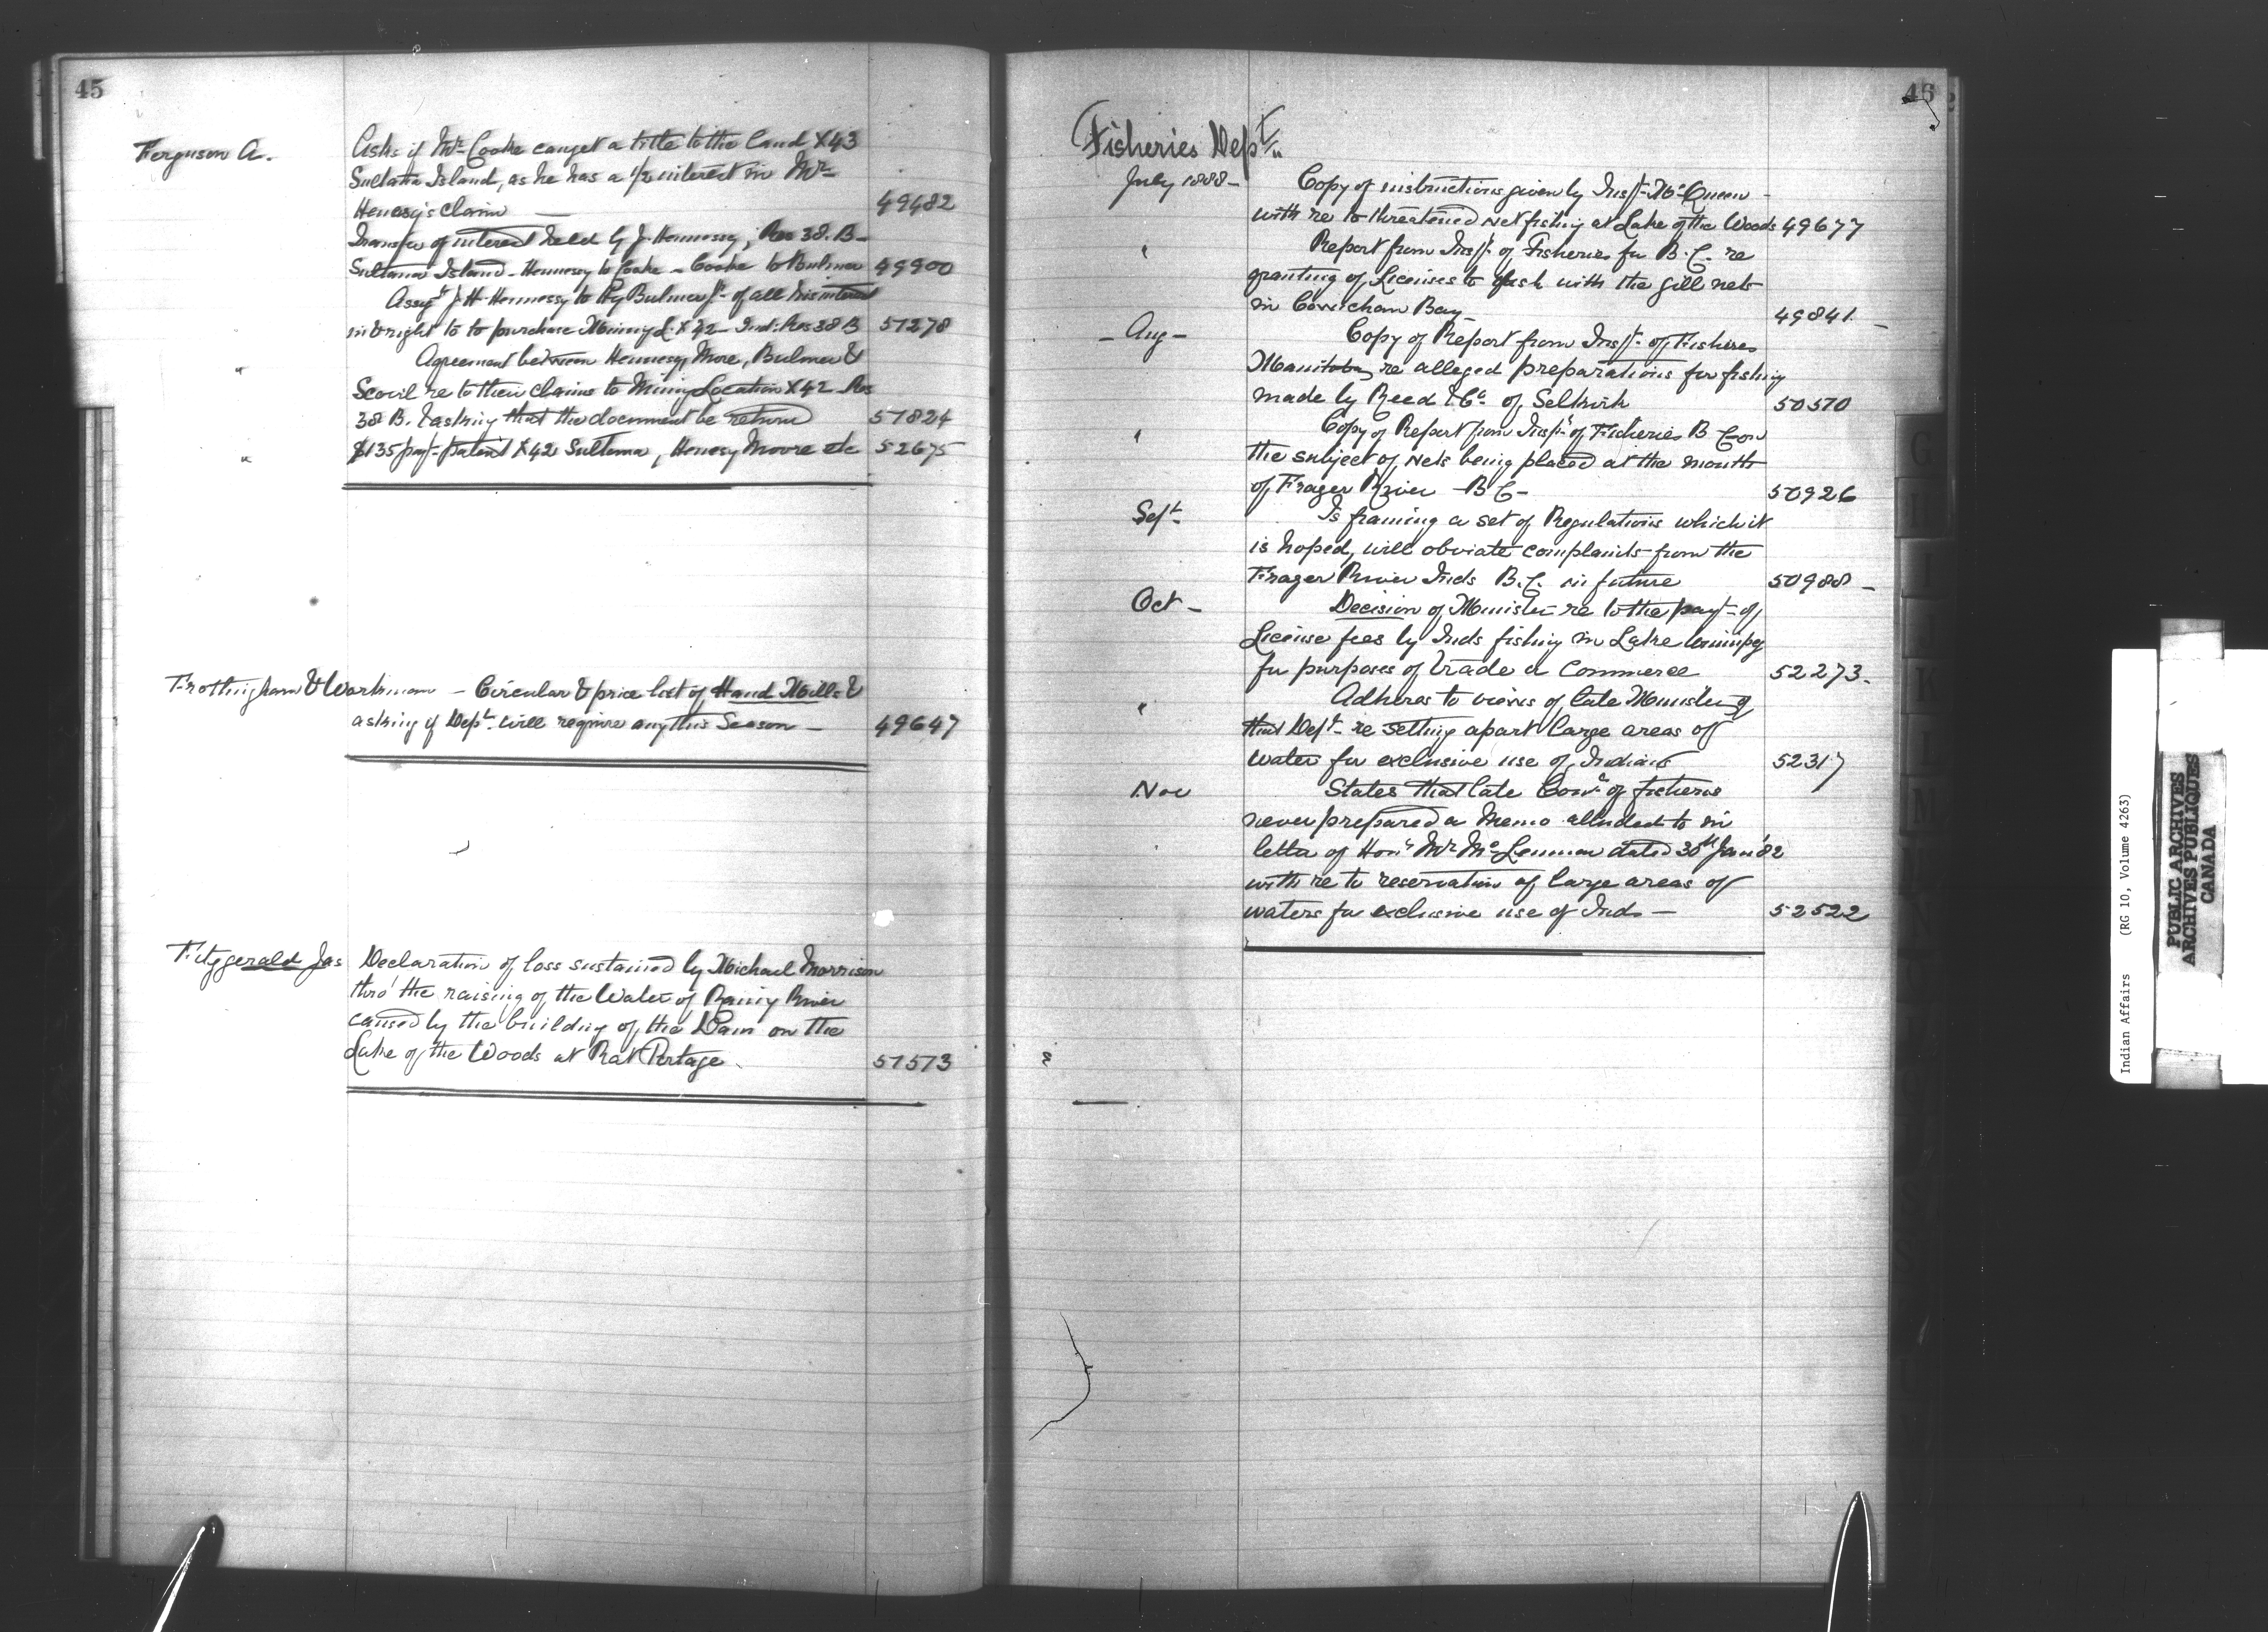 45
Ferguson A.
Asks if Mr Cooke can get a title to the land X43
Sultana Island, as he has a 1/2 interest in Mr
Henesy's claim — 49482
Transfer of interest held by J. Hennessy, Res 38. B-
Sultana Island - Hennessy to Cooke - Cooke to Bulmer 49900
Assgt J. H. Hennessy to Hy Bulmer Jr of all his interest
in & right to to purchase Mining L. X42 Ind: Res 38 B 51278
" Agreement between Hennesy, More, Bulmer &
Scovil re to their claims to Mining Location X42 Res
38 B. & asking that the document be return 51824
" $135 payt patent X42 Sultana, Henesy Moore etc 52675
Frothingham & Workman - Circular & price list of Hand Mills &
asking if Dept will require any this Season — 49647
Fitzgerald Jas Declaration of loss sustained by Michael Morrison
thro' the raising of the Water of Rainy River
caused by the building of the Dam on the
Lake of the Woods at Rat Portage. 51513
46
Fisheries Dept
July 1888 - Copy of instructions given by Inspr McQueen -
with re to threatened net fishing at Lake of the Woods 49677
" Report from Inspr of Fisheries for B. C. re
granting of Licenses to fish with the gill nets
in Cowichan Bay 49841 -
- Aug - Copy of Report from Inspr of Fisheries
Manitoba, re alleged preparations for fishing
made by Reed & Co of Selkirk 50570
" Copy of Report from Inspr of Fisheries B C on
the subject of, nets being placed at the mouth
of Frazer River - B C - 50926
Sept - Is framing a set of Regulations which it
is hoped, will obviate complaints from the
Frazer River Inds B.C. in future 50988 -
Oct - Decision of Minister re to the payt of
License fees by Inds fishing in Lake Winnipeg
for purposes of trade & commerce 52273.
" Adheres to views of late Minister of
that Dept re setting apart large areas of
water for exclusive use of Indians 52317
Nov States that late Comr of fisheries
never prepared a Memo alluded to in
letter of Honl Mr McLennan dated 30th Jan '82
with re to reservation of large areas of
waters for exclusive use of Inds — 52522
Indian Affairs (RG 10, Volume 4263)
PUBLIC ARCHIVES
ARCHIVES PUBLIQUES
CANADA